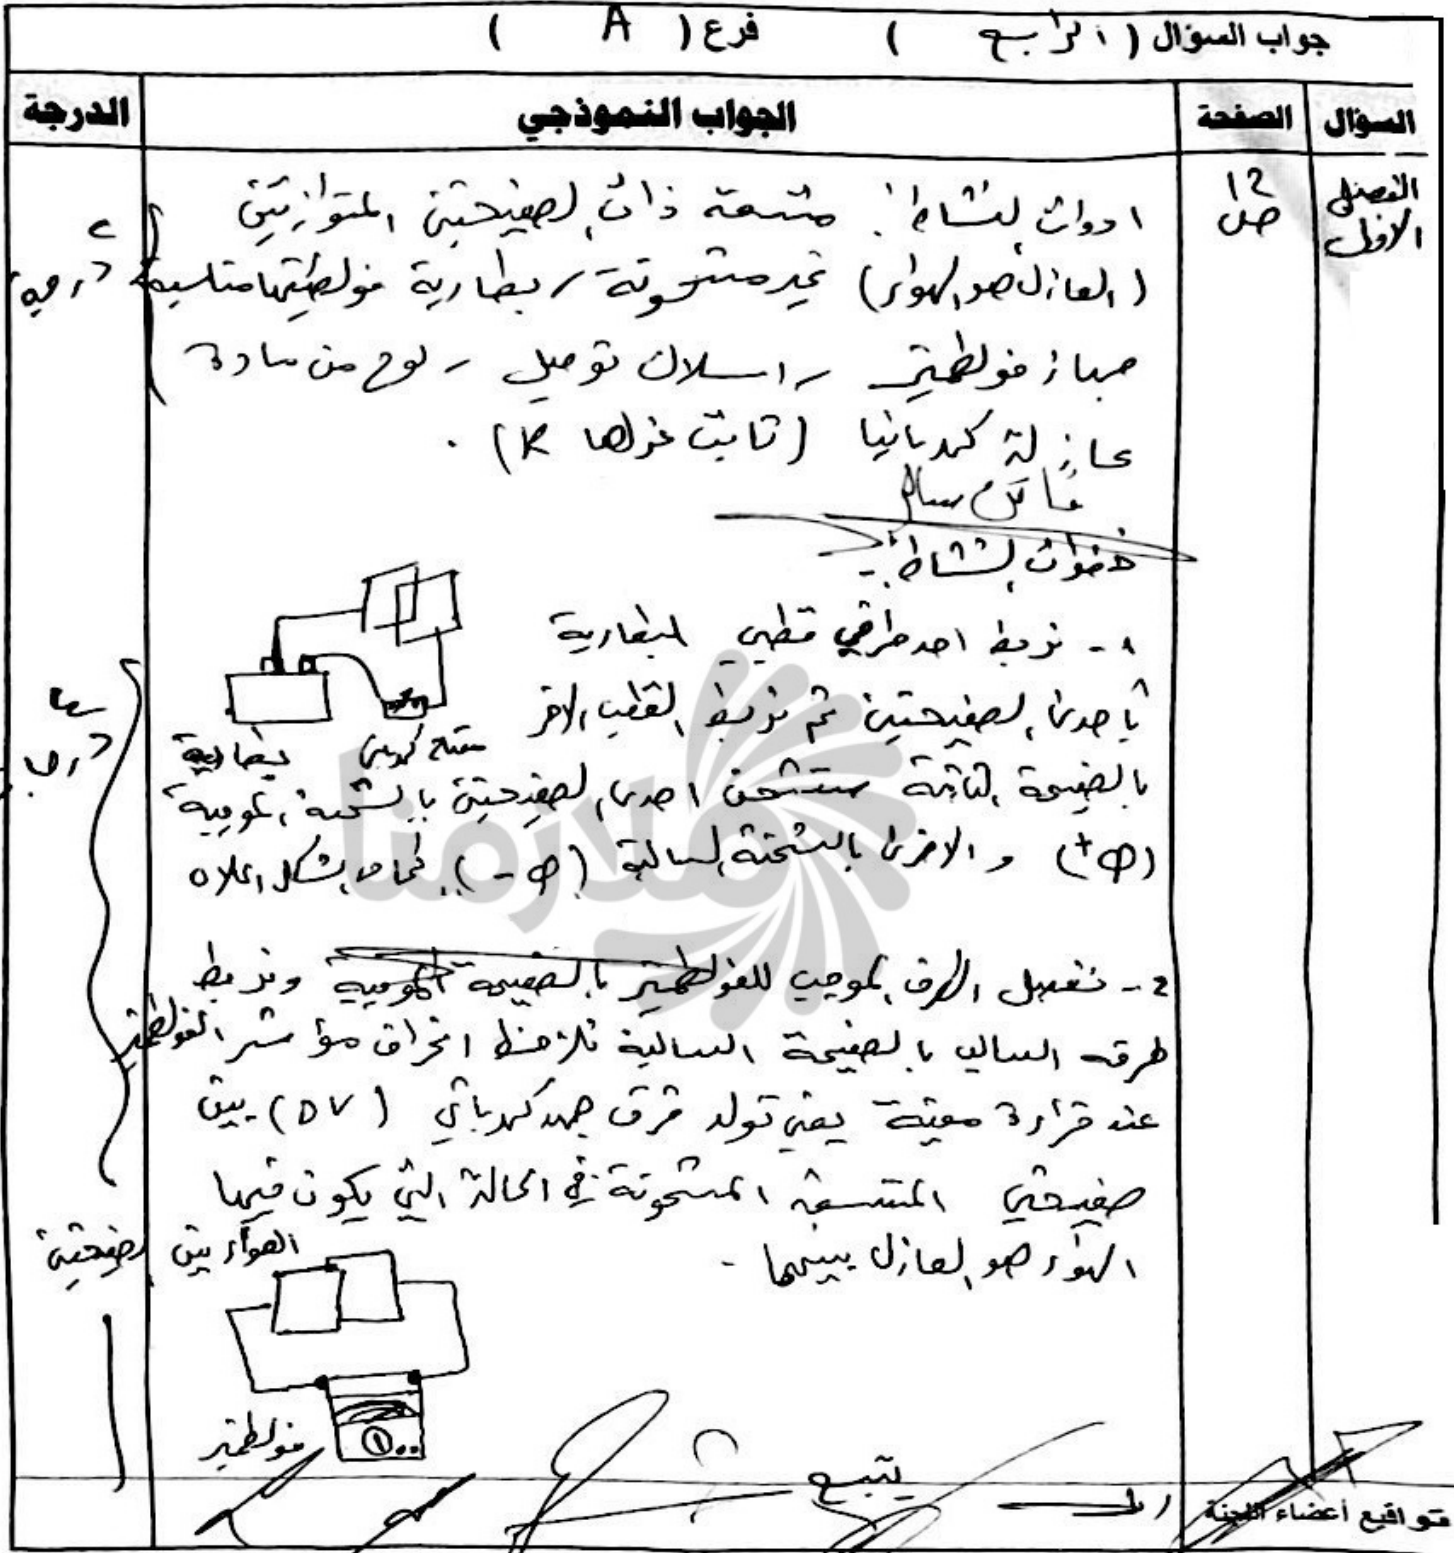 جواب السؤال ( الرابع ) فرع ( A )
السؤال الصفحة الجواب النموذجي الدرجة
الفصل الاول
12 ص
ادوات النشاط: متسعة ذات الصفيحتين المتوازيتين
(العازل هو الهواء) غير مشحونة ، بطارية فولطيتها مناسبة
جهاز فولطميتر ، اسلاك توصيل ، لوح من مادة
عازلة كهربائيا (ثابت عزلها K) .
خطوات النشاط :-
١- نربط احد طرفي قطبي البطارية
بأحدى الصفيحتين ثم نربط القطب الاخر
مفتاح كهربائي بطارية
بالصفيحة الثانية ستشحن احدى الصفيحتين بالشحنة الموجبة
(+Q) والاخرى بالشحنة السالبة (-Q) كما في الشكل اعلاه
2- نفصل الطرف الموجب للفولطميتر بالصفيحة الموجبة ونربط
طرفه السالب بالصفيحة السالبة نلاحظ انحراف مؤشر الفولطميتر
عند قراءة معينة يعني تولد فرق جهد كهربائي (ΔV) بين
صفيحتي المتسعة المشحونة في الحالة التي يكون فيها
الهواء هو العازل بينهما .
الهواء بين الصفيحتين
فولطميتر
يتبع
تواقيع أعضاء اللجنة
ملازمنا